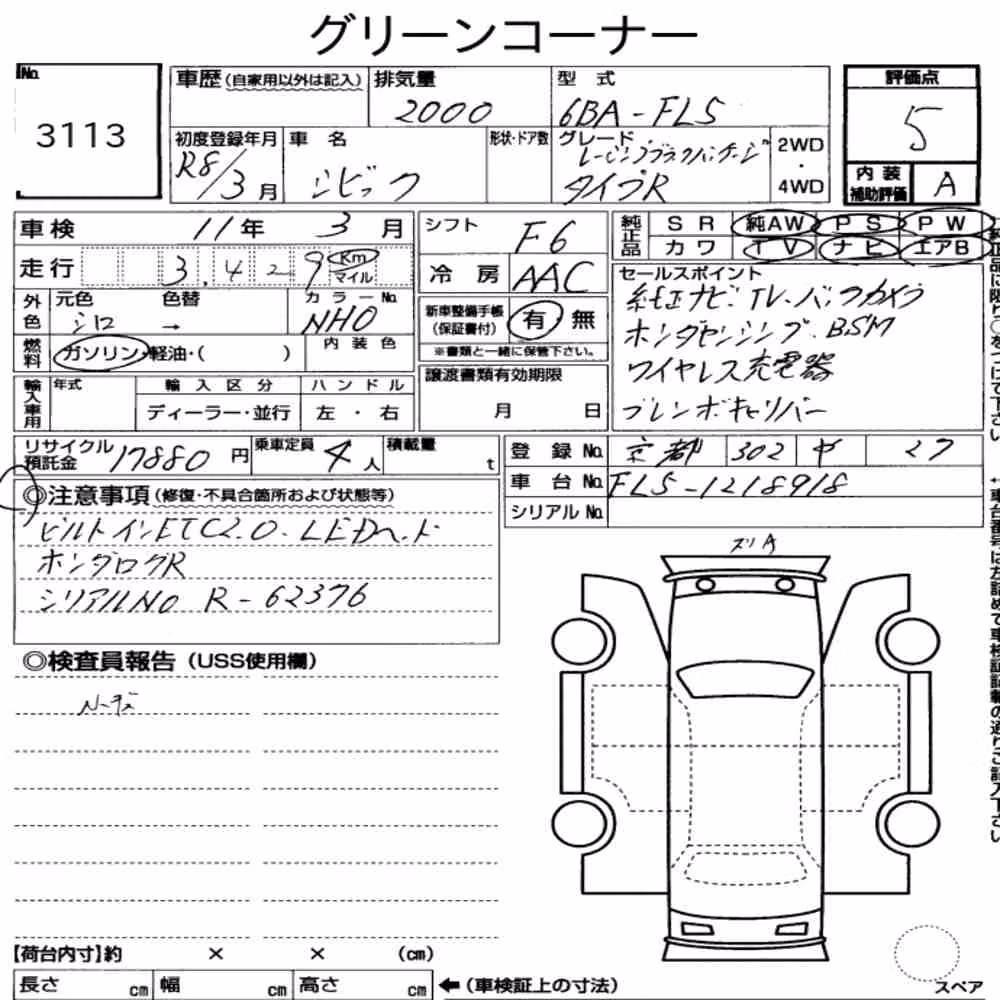 グリーンコーナー
No. 3113
車歴(自家用以外は記入) 排気量 2000 型式 6BA-FL5
評価点 5
初度登録年月 R8/3月 車名 シビック 形状・ドア数 グレード レーシングブラックパッケージ タイプR 2WD・4WD
内装補助評価 A
車検 11年 3月 シフト F6
純正品 SR 純AW PS PW
カワ TV ナビ エアB
走行 3.429 Km マイル
冷房 AAC
セールスポイント
純正ナビ・TV・バックカメラ
ホンダセンシング・BSM
ワイヤレス充電器
ブレンボキャリパー
外色 元色 シロ → 色替 カラーNo. NHO
新車整備手帳(保証書付) 有 無
※書類と一緒に保管下さい。
燃料 ガソリン・軽油・( ) 内装色
輸入車用 年式 輸入区分 ハンドル
ディーラー・並行 左・右
譲渡書類有効期限
月 日
リサイクル預託金 17880円 乗車定員 4人 積載量 t
登録No. 京都 302 や 27
車台No. FL5-1218918
シリアルNo.
◎注意事項(修復・不具合箇所および状態等)
ビルトインETC2.0・LEDヘッド
ホンダログR
シリアルNO R-62376
◎検査員報告(USS使用欄)
スリA
【荷台内寸】約 × × (cm)
長さ cm 幅 cm 高さ cm ←(車検証上の寸法)
スペア